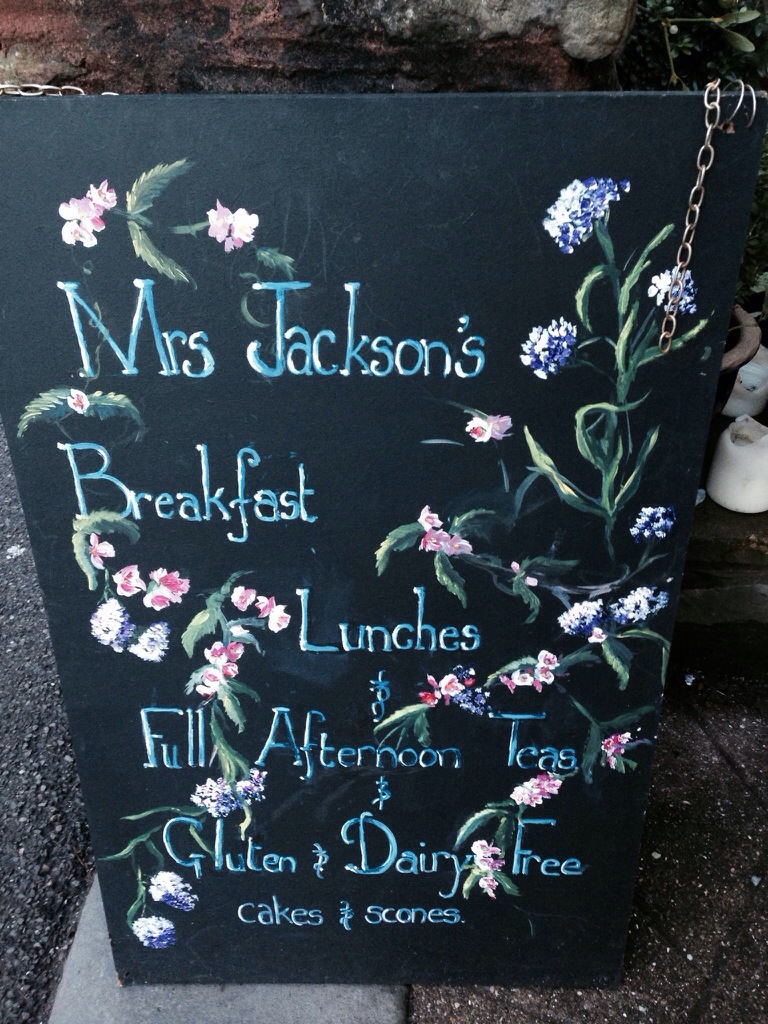 Mrs Jackson's
Breakfast
Lunches
&
Full Afternoon Teas
&
Gluten & Dairy Free
cakes & scones.